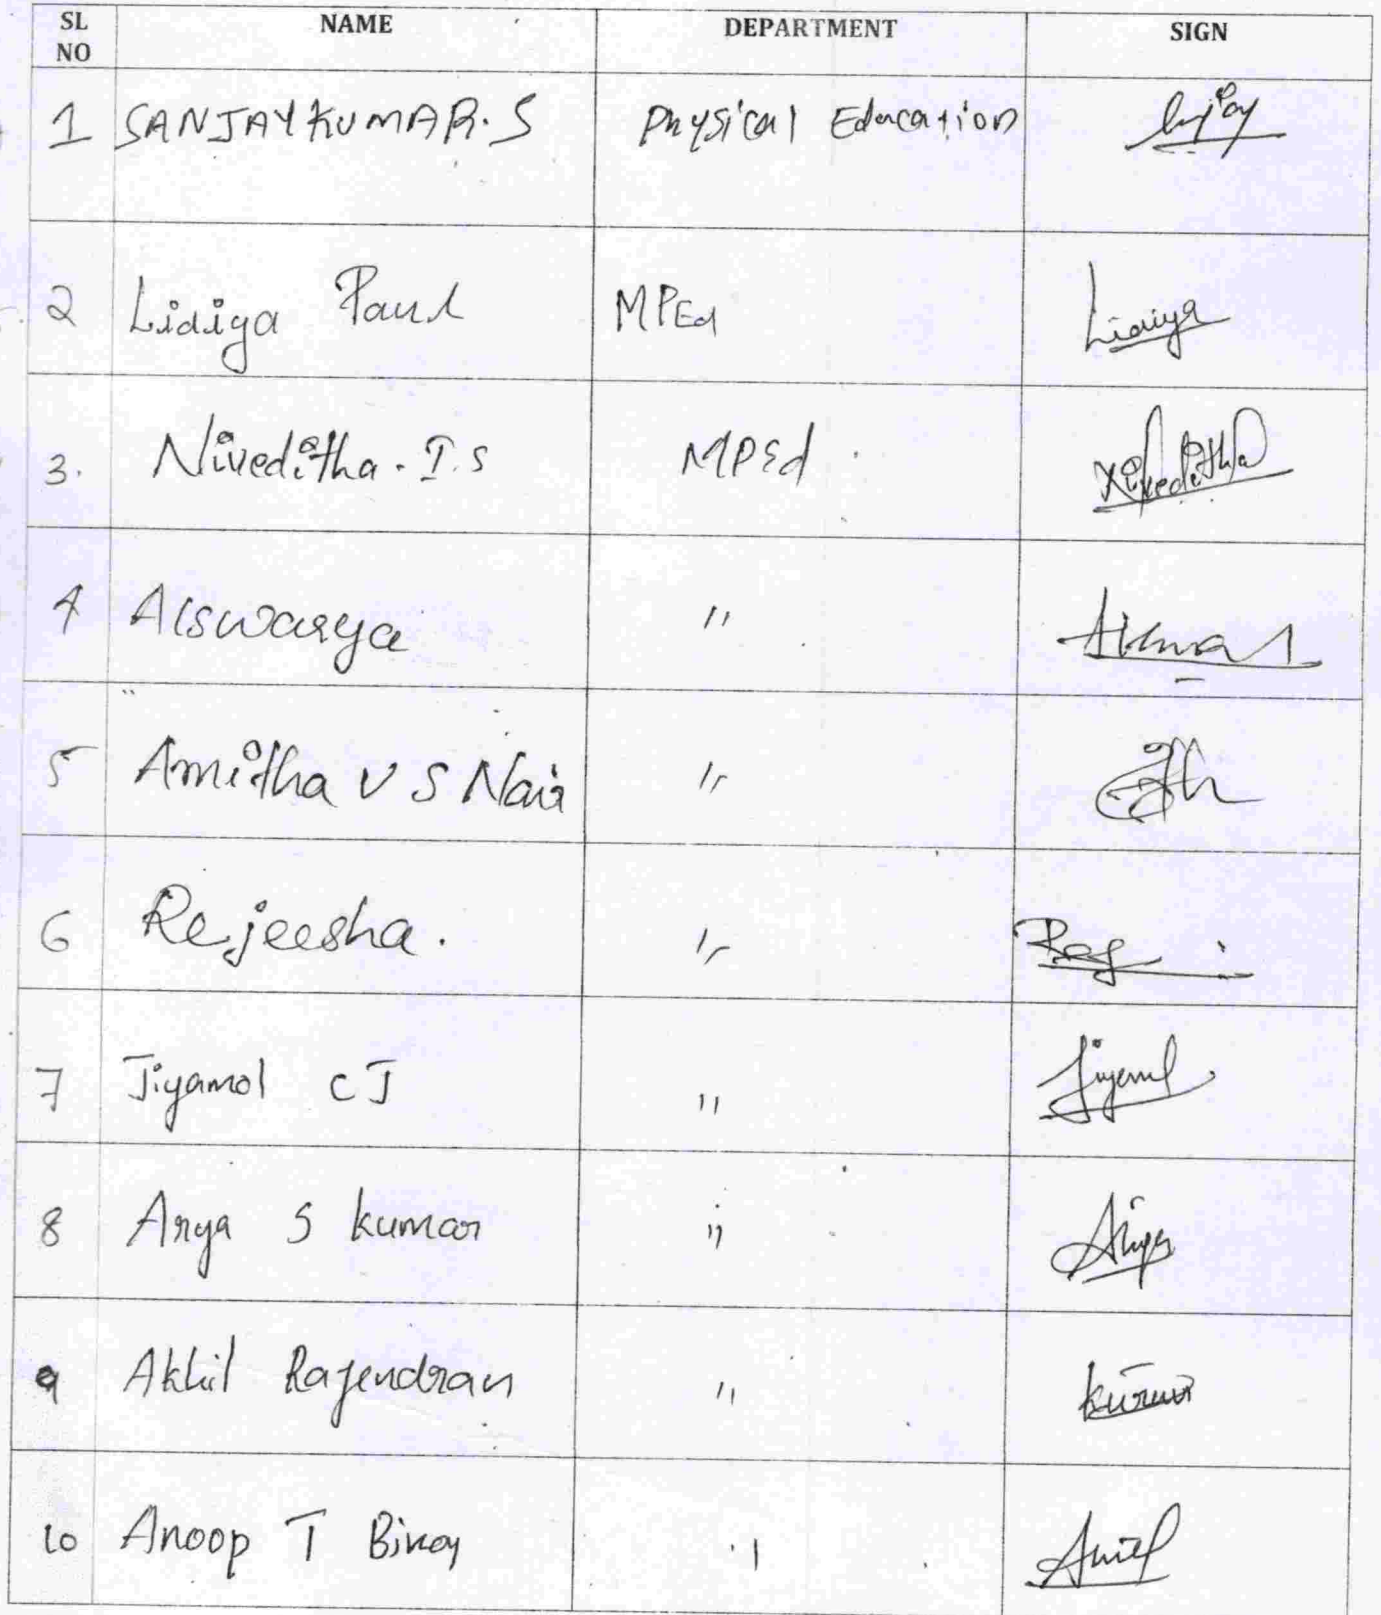 SL NO NAME DEPARTMENT SIGN
1 SANJAYKUMAR.S Physical Education
2 Lidiya Paul MPEd Lidiya
3. Niveditha. I.S MPEd Niveditha
4 Aiswarya "
5 Amitha V S Nair "
6 Rejeesha. " Rej
7 Jiyamol C J " Jiyamol
8 Arya S kumar " Arya
9 Akhil Rajendran "
10 Anoop T Binoy "